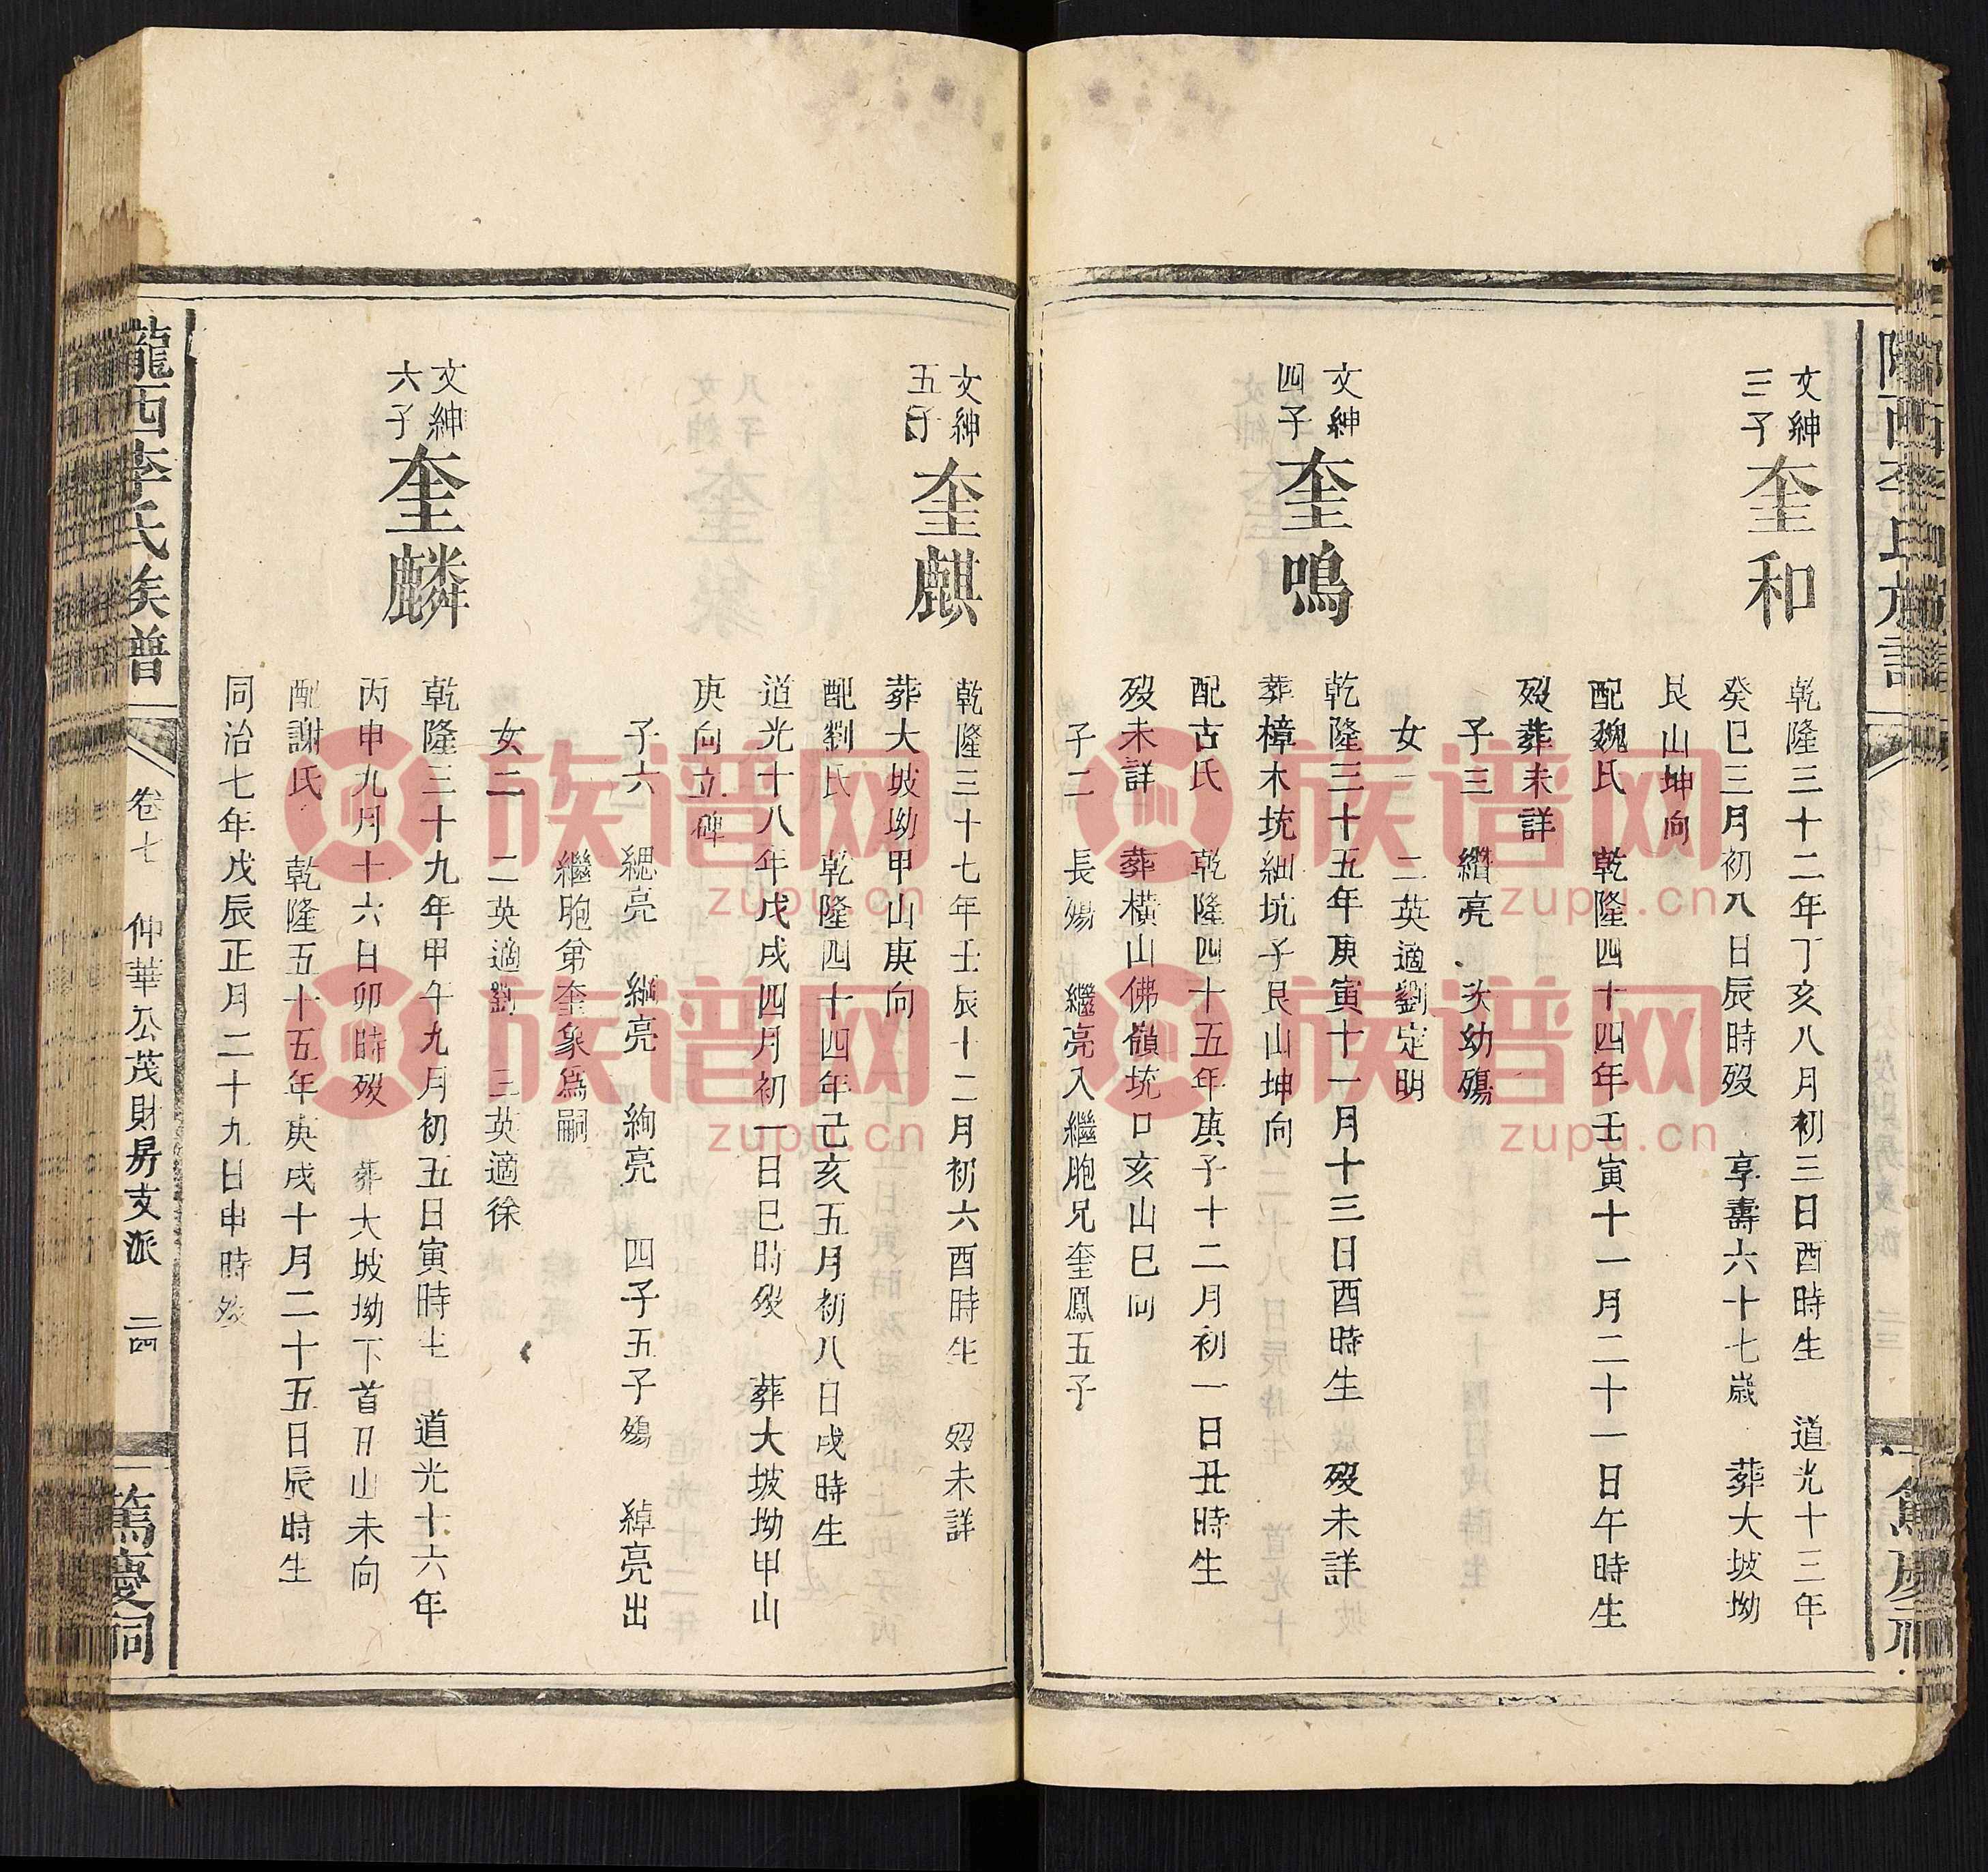 隴西李氏族譜
篤慶祠
文紳
三子
奎和
乾隆三十二年丁亥八月初三日酉時生 道光十三年
癸巳三月初八日辰時歿 享壽六十七歲 葬大坡坳
艮山坤向
配魏氏 乾隆四十四年壬寅十一月二十一日午時生
歿葬未詳
子三 纘亮 次幼殤
女一 二英適劉定明
文紳
四子
奎鳴
乾隆三十五年庚寅十一月十三日酉時生 歿未詳
葬樟木坑細坑子艮山坤向
配古氏 乾隆四十五年庚子十二月初一日丑時生
歿未詳 葬橫山佛嶺坑口亥山巳向
子二 長殤 繼亮入繼胞兄奎鳳五子
文紳
五子
奎麒
乾隆三十七年壬辰十二月初六酉時生 歿未詳
葬大坡坳甲山庚向
配劉氏 乾隆四十四年己亥五月初八日戌時生
道光十八年戊戌四月初一日巳時歿 葬大坡坳甲山
庚向立碑
子六 緦亮 亮 絢亮 四子五子殤 綽亮出
繼胞弟奎象為嗣
女二 二英適劉 三英適徐
文紳
六子
奎麟
乾隆三十九年甲午九月初五日寅時生 道光十六年
丙申九月十六日卯時歿 葬大坡坳下首丑山未向
配謝氏 乾隆五十五年庚戌十月二十五日辰時生
同治七年戊辰正月二十九日申時歿
隴西李氏族譜
卷七 仲華公茂財房支派 二四
篤慶祠
族谱网
zupu.cn
族谱网
zupu.cn
族谱网
zupu.cn
族谱网
zupu.cn